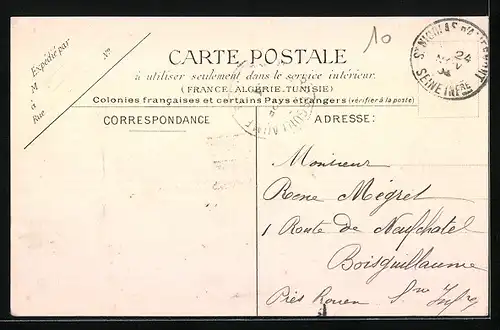 Expédié par
M
à
Rue
N°
10
CARTE POSTALE
à utiliser seulement dans le service intérieur.
(FRANCE, ALGERIE, TUNISIE)
Colonies françaises et certains Pays étrangers (vérifier à la poste)
CORRESPONDANCE
ADRESSE:
St NICOLAS D'ALIERMONT
24
SEINE INFRE
Monsieur
Rene Mégret
1 Route de Neufchatel
Boisguillaume
Près Rouen Sne Infre